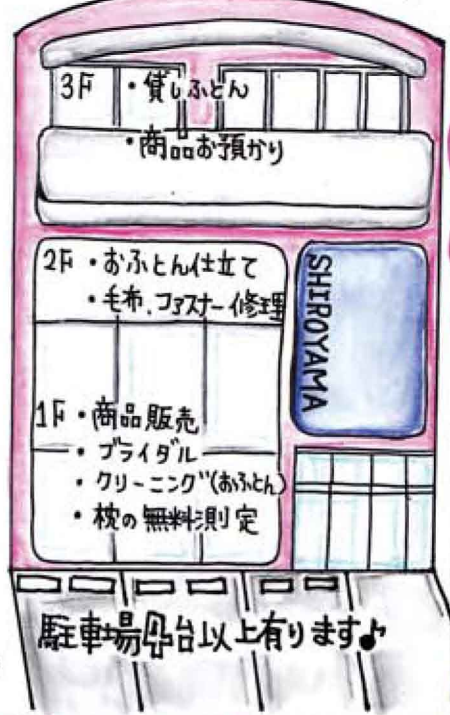 3F ・貸しふとん
・商品お預かり
2F ・おふとん仕立て
・毛布、ファスナー修理
SHIROYAMA
1F ・商品販売
・ブライダル
・クリーニング(おふとん)
・枕の無料測定
駐車場4台以上有ります♪